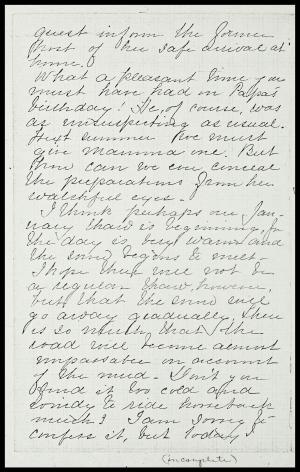 guest inform the former
host of her safe arrival at
home.
What a pleasant time you
must have had on Papa's
birthday! He, of course, was
as unsuspecting as usual.
Next summer we must
give Mamma one. But
how can we ever conceal
the preparations from her
watchful eyes -
I think perhaps our Jan-
uary thaw is beginning, for
the day is very warm and
the snow begins to melt -
I hope there will not be
a regular thaw, however,
but that the snow will
go away gradually. There
is so much, that the
road will become almost
impassable on account
of the mud - Don't you
find it too cold and
windy to ride horseback
much? I am sorry to
confess it, but today I
(incomplete)